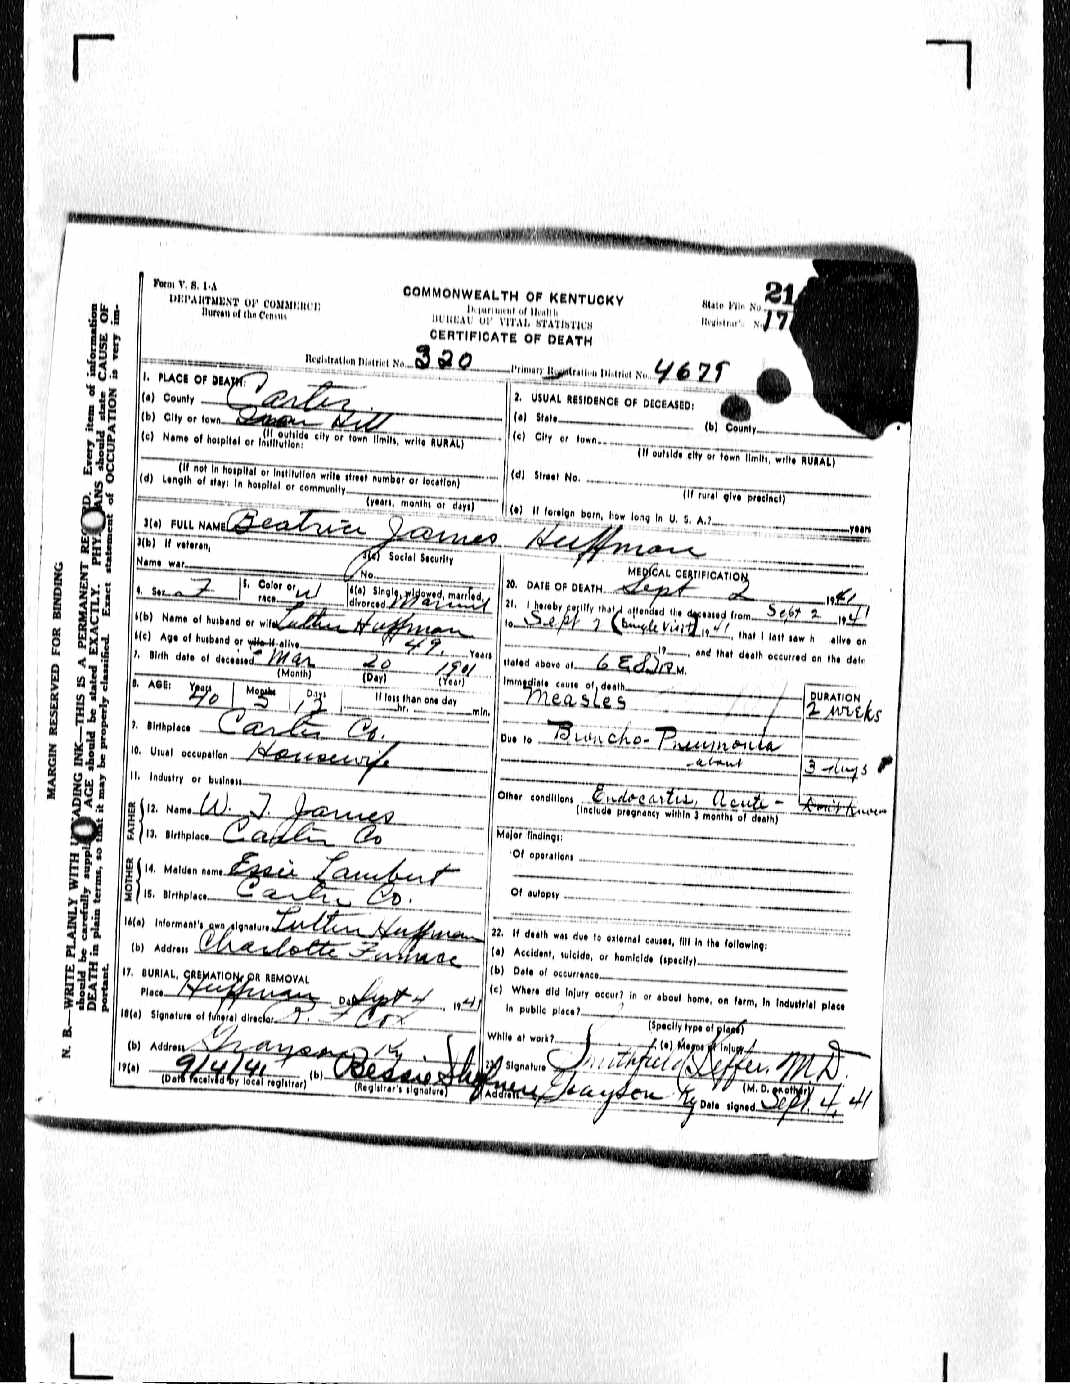 Form V. S. 1-A
DEPARTMENT OF COMMERCE
Bureau of the Census
COMMONWEALTH OF KENTUCKY
Department of Health
BUREAU OF VITAL STATISTICS
CERTIFICATE OF DEATH
State File No. 21
Registrar's No. 17
Registration District No. 320 Primary Registration District No. 4675
1. PLACE OF DEATH:
(a) County Carter
(b) City or town Iron Hill
(If outside city or town limits, write RURAL)
(c) Name of hospital or institution:
(If not in hospital or institution write street number or location)
(d) Length of stay: In hospital or community
(years, months or days)
2. USUAL RESIDENCE OF DECEASED:
(a) State (b) County
(c) City or town
(If outside city or town limits, write RURAL)
(d) Street No.
(If rural give precinct)
(e) If foreign born, how long in U. S. A.? years
3(a) FULL NAME Beatrice James Huffman
3(b) If veteran,
Name war
3(c) Social Security
No.
4. Sex F 5. Color or race W 6(a) Single, widowed, married, divorced Married
6(b) Name of husband or wife Luther Huffman
6(c) Age of husband or wife if alive 49 Years
7. Birth date of deceased Mar 20 1901
(Month) (Day) (Year)
8. AGE: Years 40 Months 5 Days 12 If less than one day
hr. min.
9. Birthplace Carter Co.
10. Usual occupation Housewife
11. Industry or business
FATHER
12. Name W. T. James
13. Birthplace Carter Co
MOTHER
14. Maiden name Essie Lambert
15. Birthplace Carter Co.
16(a) Informant's own signature Luther Huffman
(b) Address Charlotte Furnace
17. BURIAL, CREMATION OR REMOVAL
Place Huffman Date Sept 4, 1941
18(a) Signature of funeral director R. F Cox
(b) Address Grayson Ky.
19(a) 9/4/41 (b) Bessie
(Date received by local registrar) (Registrar's signature)
MEDICAL CERTIFICATION
20. DATE OF DEATH Sept 2 1941
21. I hereby certify that I attended the deceased from Sept 2 1941
to Sept 2 (Single Visit), 1941, that I last saw h alive on
19 , and that death occurred on the date
stated above at 6 P.M.
Immediate cause of death
Measles
DURATION
2 weeks
Due to Broncho-Pneumonia
about
3 days
Other conditions Endocarditis, Acute - Don't Know
(Include pregnancy within 3 months of death)
Major findings:
Of operations
Of autopsy
22. If death was due to external causes, fill in the following:
(a) Accident, suicide, or homicide (specify)
(b) Date of occurrence
(c) Where did injury occur? in or about home, on farm, in industrial place
in public place?
(Specify type of place)
While at work? (e) Means of injury
23. Signature Smithfield Keffer, M.D.
(M. D. or other)
Address Grayson Ky Date signed Sept. 4, 41
MARGIN RESERVED FOR BINDING
N. B.—WRITE PLAINLY WITH UNFADING INK—THIS IS A PERMANENT RECORD. Every item of information
should be carefully supplied. AGE should be stated EXACTLY. PHYSICIANS should state CAUSE OF
DEATH in plain terms, so that it may be properly classified. Exact statement of OCCUPATION is very im-
portant.